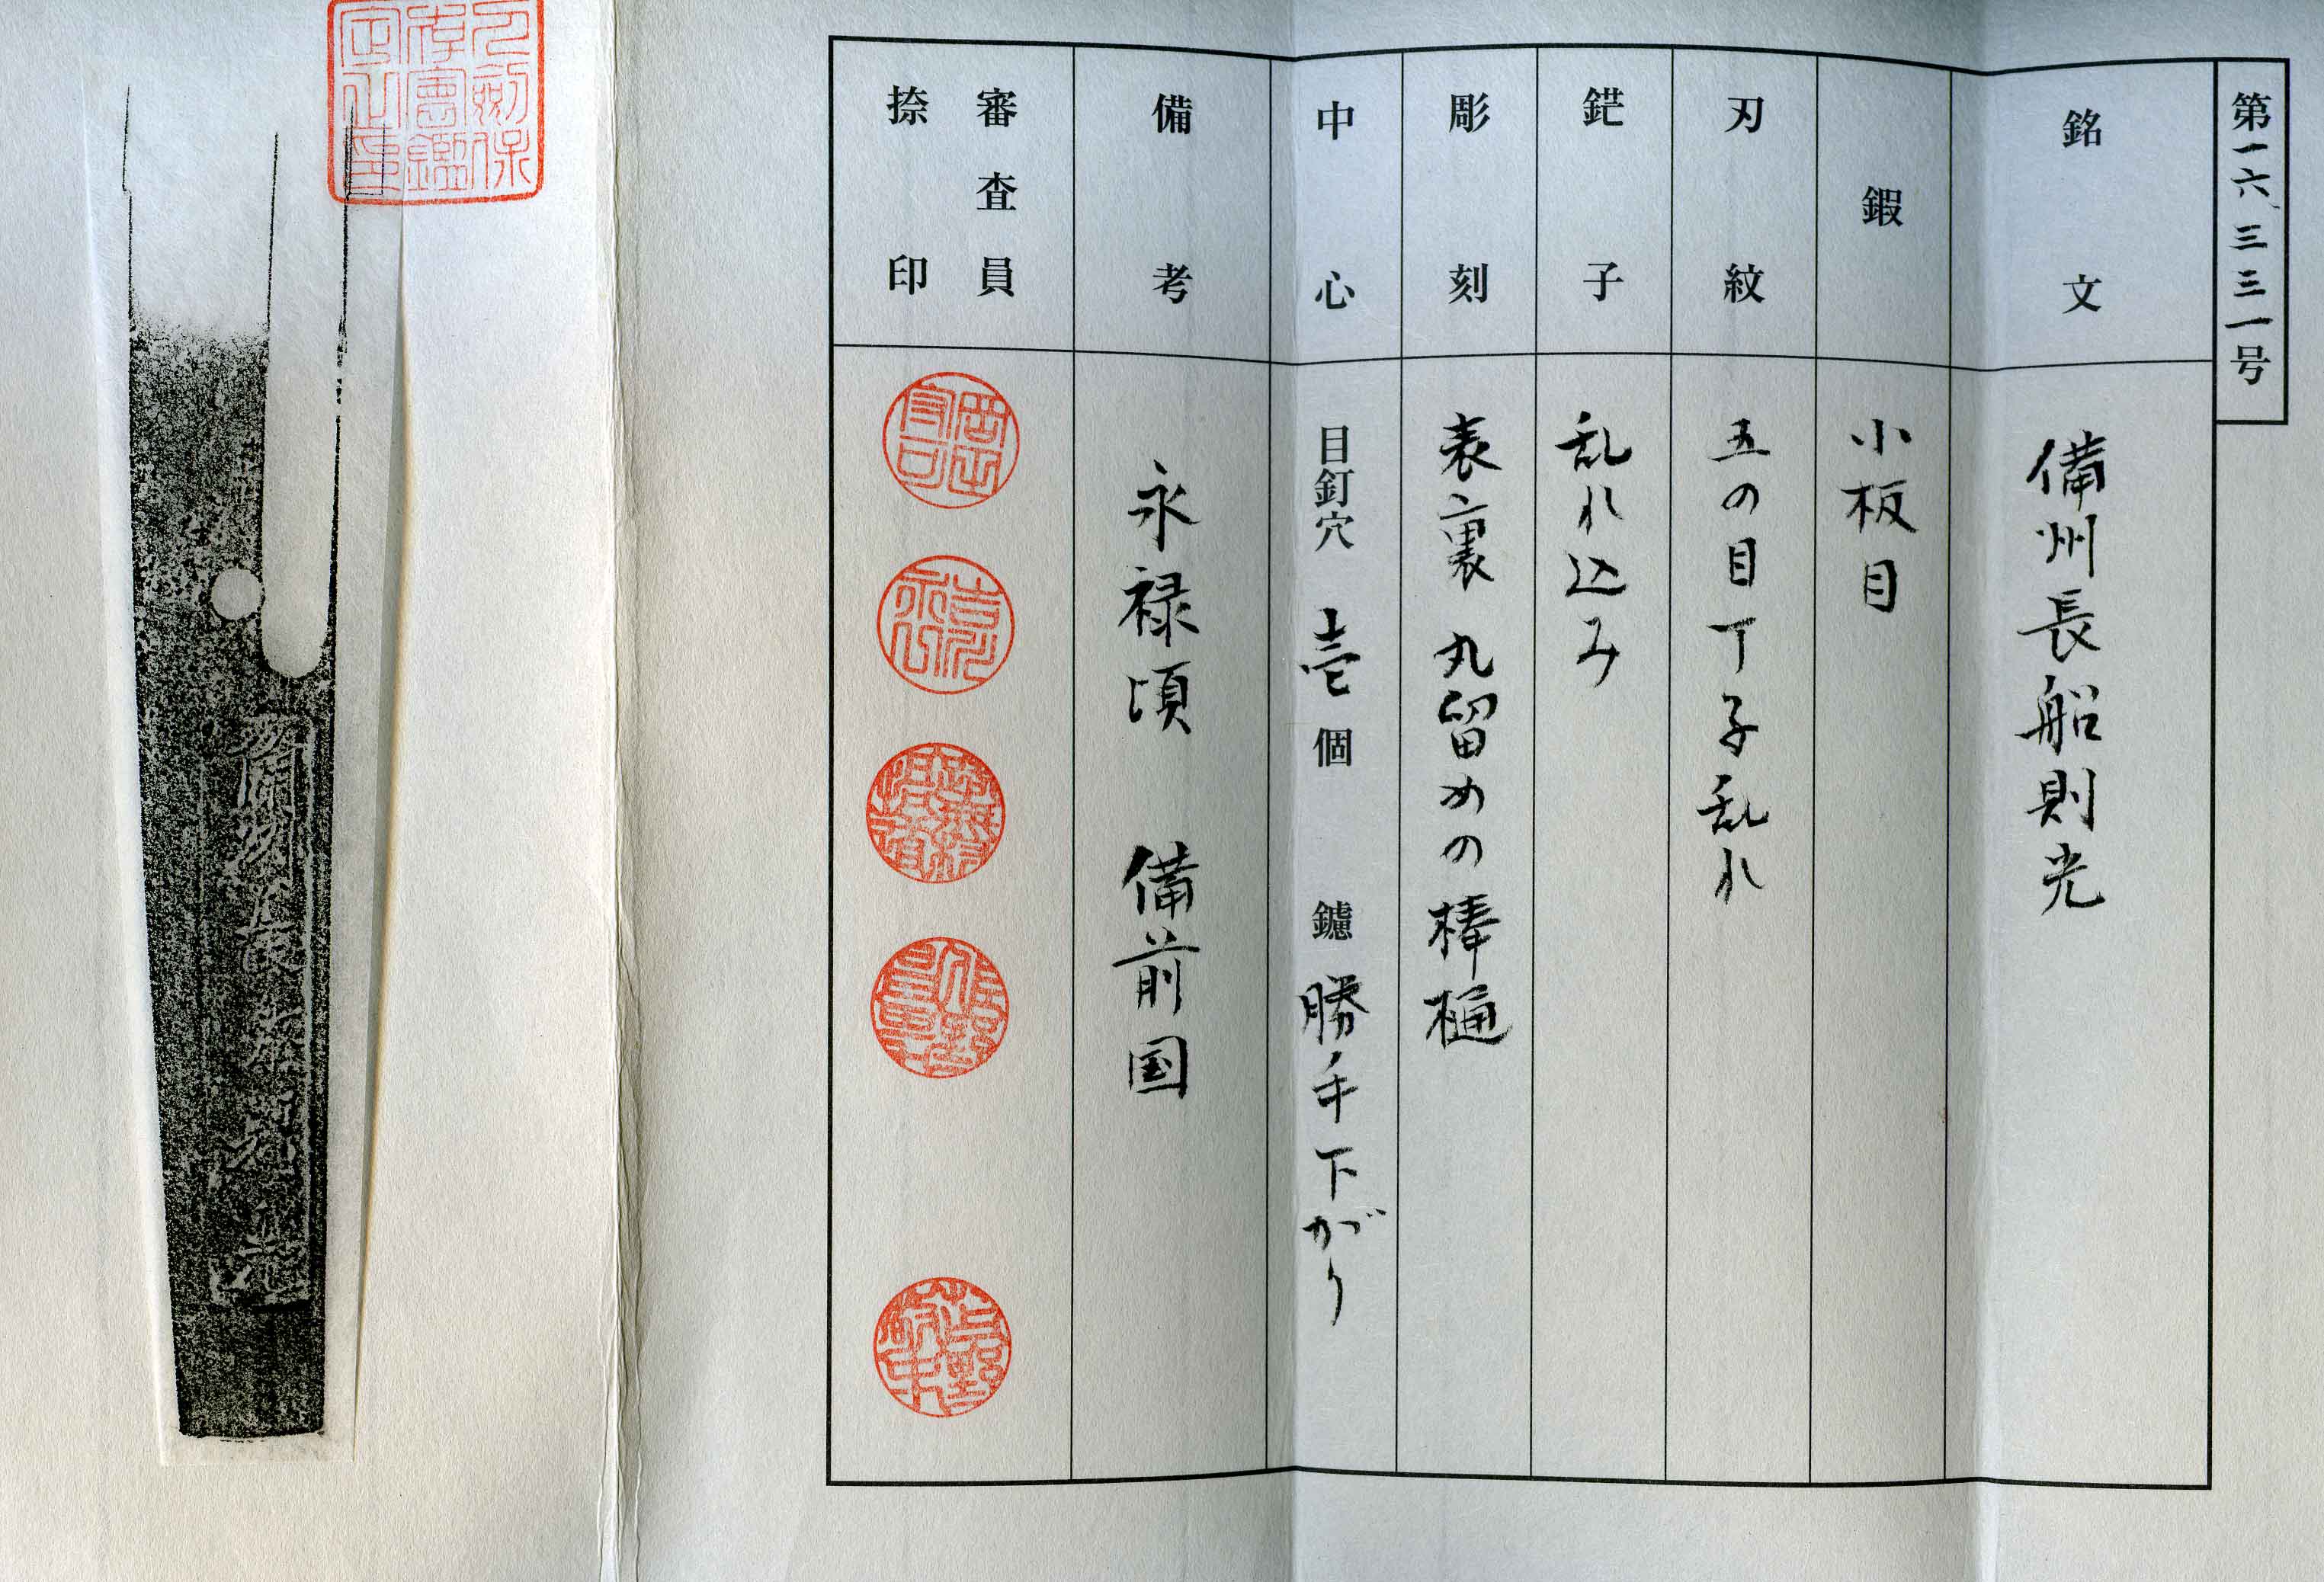 第一六、三三一号
銘文
備州長船則光
鍜
小板目
刃紋
五の目丁子乱れ
鋩子
乱れ込み
彫刻
表裏 丸留めの棒樋
中心
目釘穴 壱個 鑢 勝手下がり
備考
永禄頃 備前国
審査員
捺印